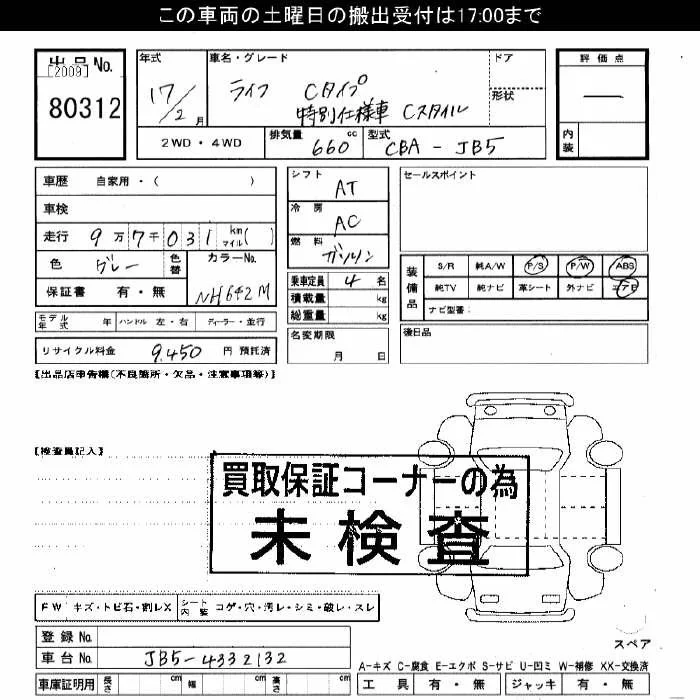 この車両の土曜日の搬出受付は17:00まで
出品No.
[2009]
80312
年式
17/2月
車名・グレード
ライフ Cタイプ
特別仕様車 Cスタイル
ドア
形状
評価点
内装
2WD・4WD
排気量 660 cc
型式 CBA-JB5
車歴 自家用・( )
車検
走行 9万7千031 km マイル( )
色 グレー 色替
カラーNo. NH642M
保証書 有・無
シフト AT
冷房 AC
燃料 ガソリン
乗車定員 4名
積載量 kg
総重量 kg
セールスポイント
装備品
S/R 純A/W P/S P/W ABS
純TV 純ナビ 革シート 外ナビ エアB
ナビ型番:
モデル年式 年 ハンドル 左・右 ディーラー・並行
名変期限
月 日
後日品
リサイクル料金 9,450 円 預託済
【出品店申告欄(不良箇所・欠品・注意事項等)】
【検査員記入】
買取保証コーナーの為
未検査
FW キズ・トビ石・割レX
シート内装 コゲ・穴・汚レ・シミ・破レ・スレ
登録No.
車台No. JB5-4332132
車庫証明用 長さ cm 幅 cm 高さ cm
スペア
A-キズ C-腐食 E-エクボ S-サビ U-凹ミ W-補修 XX-交換済
工具 有・無 ジャッキ 有・無